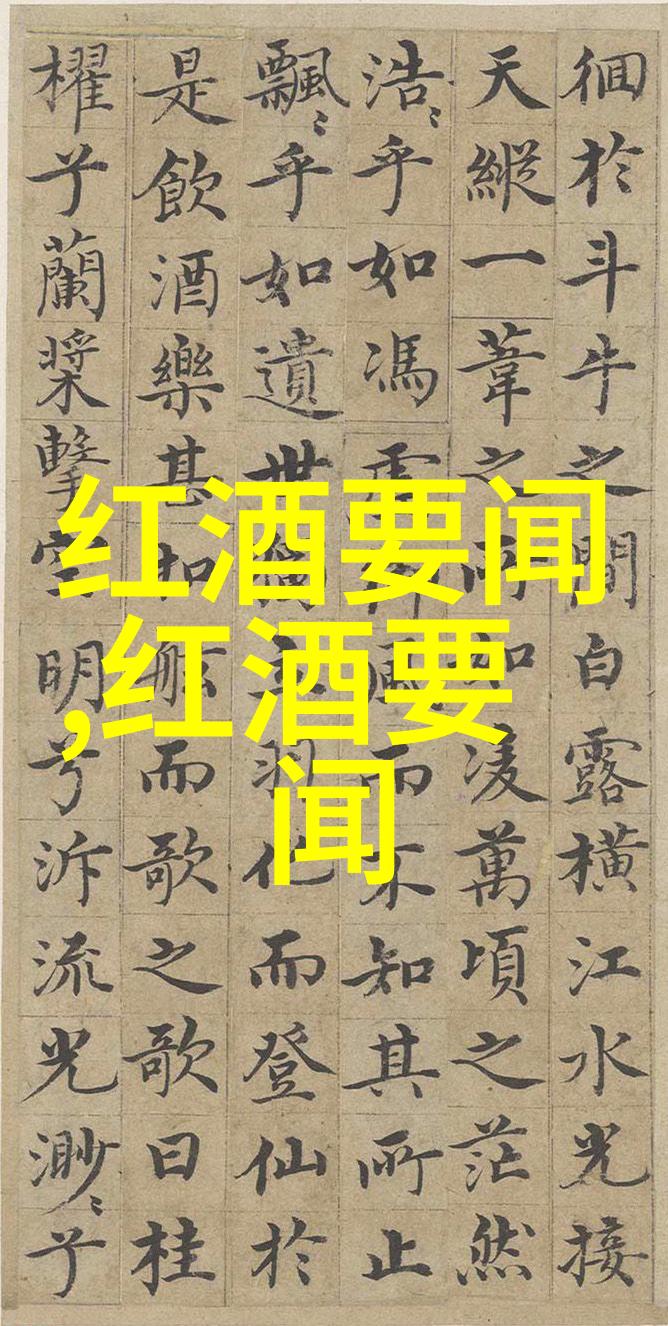 徊於斗牛之間白露橫江水光接
天縱一葦之所如凌萬頃之茫然
浩〻乎如馮虛御風而不知其所止
飄〻乎如遺世獨立羽化而登仙於
是飲酒樂甚扣舷而歌之歌曰桂
櫂兮蘭槳擊空明兮泝流光渺〻兮
红酒要闻
,红酒要
闻